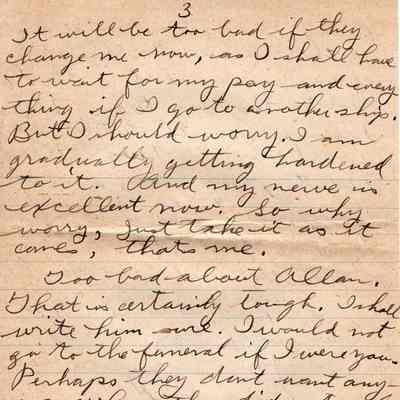 3
It will be too bad if they
change me now, as I shall have
to wait for my pay and every
thing if I go to another ship.
But I should worry. I am
gradually getting hardened
to it. And my nerve is
excellent now. So why
worry, just take it as it
comes, thats me.
Too bad about Allan.
That is certainly tough. I shall
write him sure. I would not
go to the funeral if I were you.
Perhaps they dont want any-